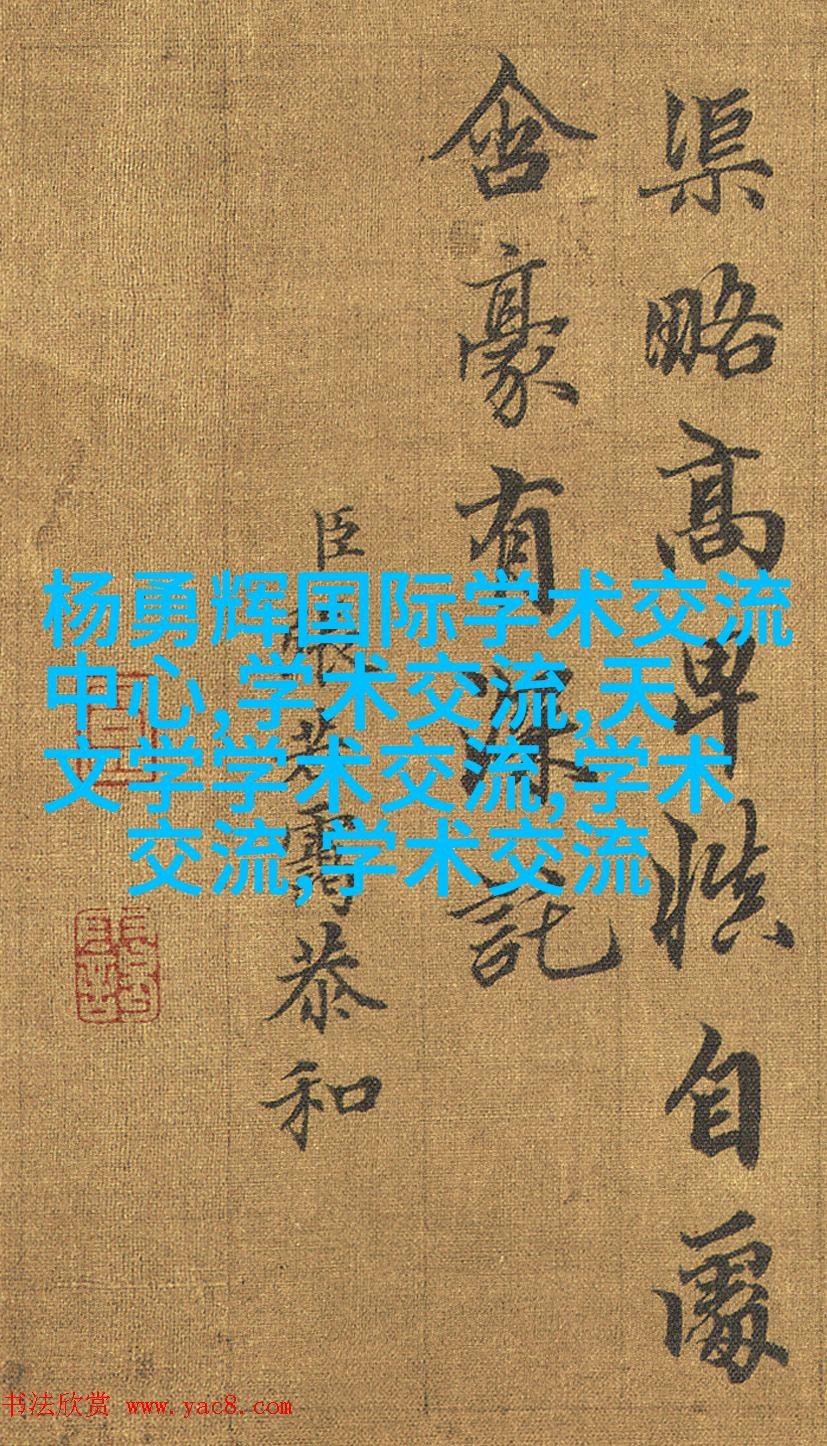 渠略高卑慎自處
含豪有深託
臣張若靄恭和
杨勇辉国际学术交流
中心,学术交流,天
文学学术交流,学术
交流,学术交流
书法欣赏 www.yac8.com